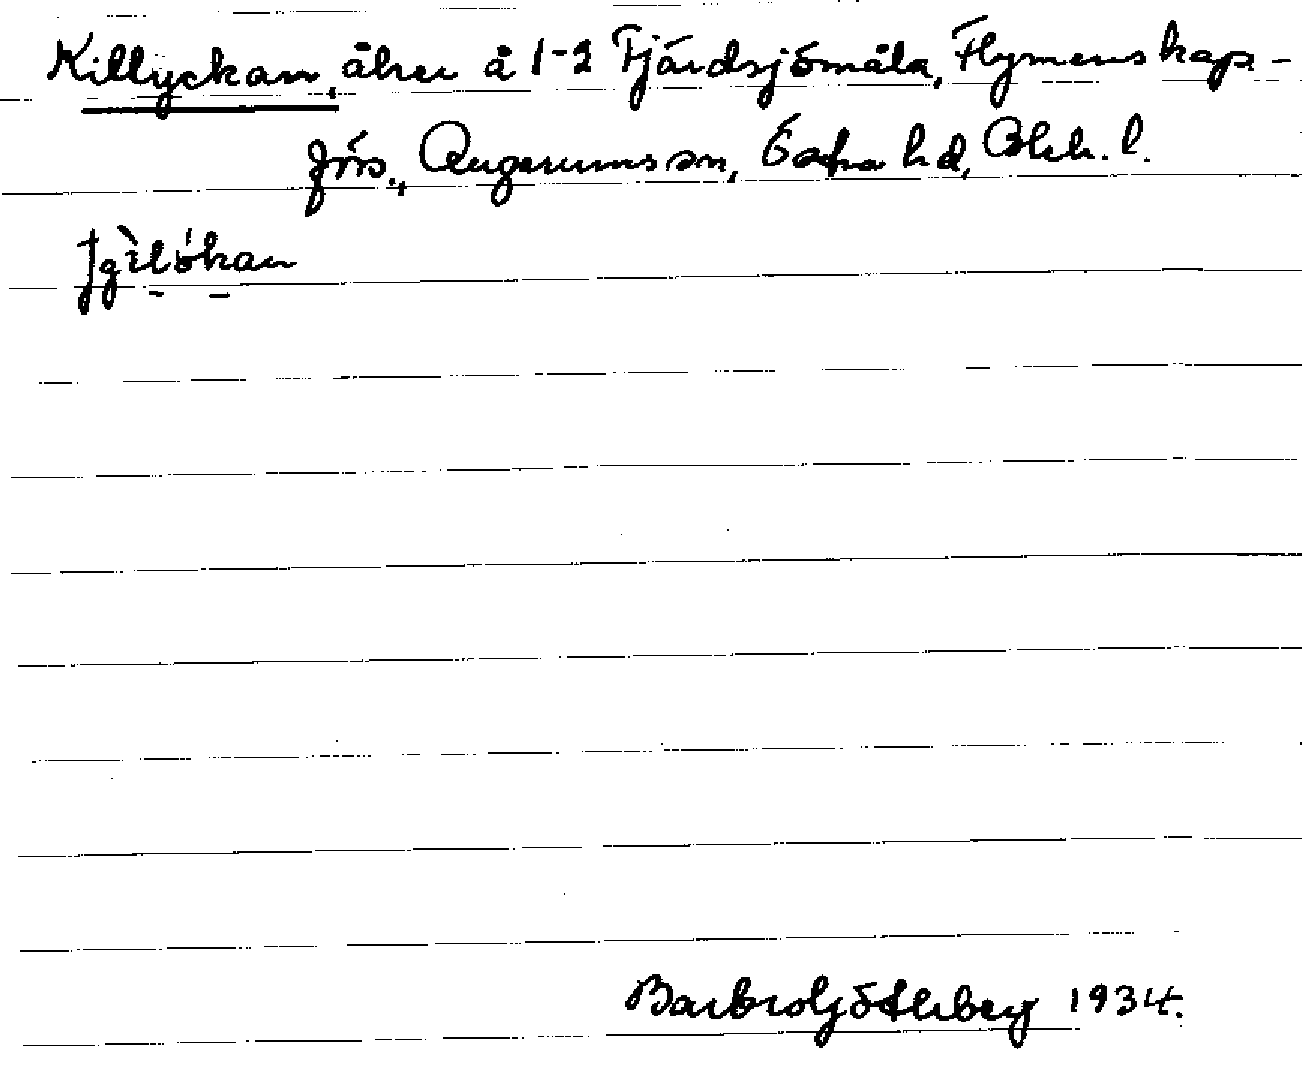 Killyckan, åker å 1-2 Fjärdsjömåla, Flymens kap-
förs., Augerums sn, Östra hd, Blek. l.
Barbro Söderberg 1934.